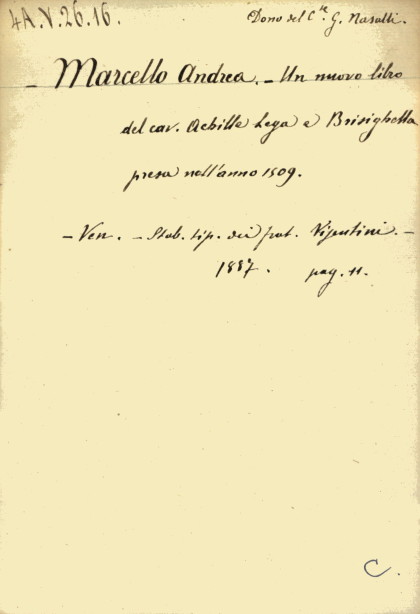 4A.V.26.16.
Dono del C.te G. Nasalli.
- Marcello Andrea. - Un nuovo libro
del cav. Achille Lega e Brisighella
presa nell'anno 1509.
- Ven. - Stab. tip. dei frat. Visentini. -
1887. pag. 11.
C.